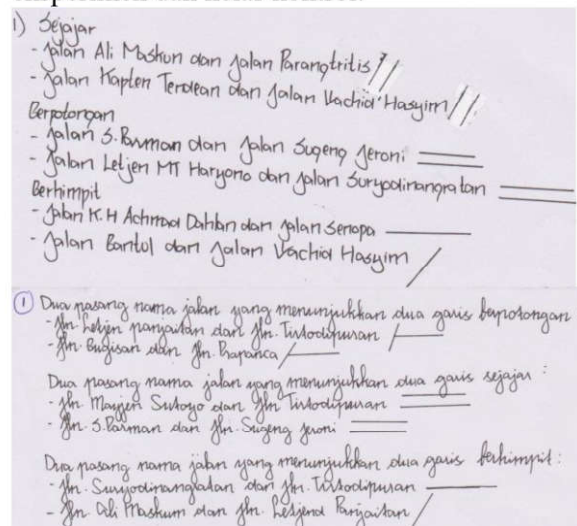 1) Sejajar
- Jalan Ali Maskun dan Jalan Parangtritis
- Jalan Kapten Terdean dan Jalan Wachid Hasyim
Berpotongan
- Jalan S. Parman dan Jalan Sugeng Jeroni
- Jalan Letjen MT Haryono dan Jalan Suryodinangratan
Berhimpit
- Jalan K.H Achmad Dahlan dan Jalan Senopa
- Jalan Bantul dan Jalan Wachid Hasyim
① Dua pasang nama jalan yang menunjukkan dua garis berpotongan
- Jln. Letjen panjaitan dan Jln. Tirtodipuran
- Jln. Bugisan dan Jln. Prapanca
Dua pasang nama jalan yang menunjukkan dua garis sejajar :
- Jln. Mayjen Sutoyo dan Jln Tirtodipuran
- Jln. S. Parman dan Jln. Sugeng Jeroni
Dua pasang nama jalan yang menunjukkan dua garis berhimpit :
- Jln. Suryodinangratan dan Jln. Tirtodipuran
- Jln. Ali Maskum dan Jln. Letjend Panjaitan